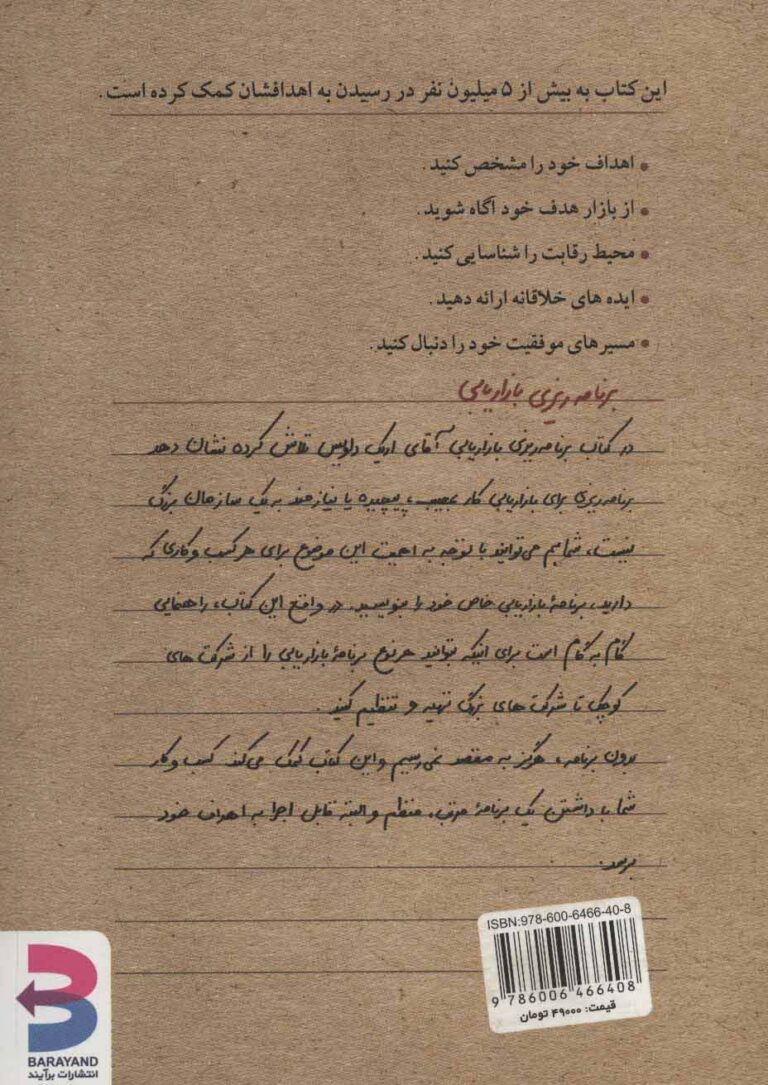 این کتاب به بیش از ۵ میلیون نفر در رسیدن به اهدافشان کمک کرده است.
• اهداف خود را مشخص کنید.
• از بازار هدف خود آگاه شوید.
• محیط رقابت را شناسایی کنید.
• ایده های خلاقانه ارائه دهید.
• مسیرهای موفقیت خود را دنبال کنید.
برنامه ریزی بازاریابی
در کتاب برنامه ریزی بازاریابی آقای اریک دلویس تلاش کرده نشان دهد
برنامه ریزی برای بازاریابی کار عجیب، پیچیده یا نیازمند به یک سازمان بزرگ
نیست، شما هم می‌توانید با توجه به اهمیت این موضوع برای هر کسب و کاری که
دارید، برنامهٔ بازاریابی خاص خود را بنویسید. در واقع این کتاب، راهنمایی
گام به گام است برای اینکه بتوانید هر نوع برنامهٔ بازاریابی را از شرکت های
کوچک تا شرکت های بزرگ تهیه و تنظیم کنید.
بدون برنامه، هرگز به مقصد نمی‌رسیم و این کتاب کمک می‌کند کسب و کار
شما با داشتن یک برنامهٔ مرتب، منظم و البته قابل اجرا به اهداف خود
برسد.
ISBN:978-600-6466-40-8
9 786006 466408
قیمت: ۴۹۰۰۰ تومان
BARAYAND
انتشارات برآیند